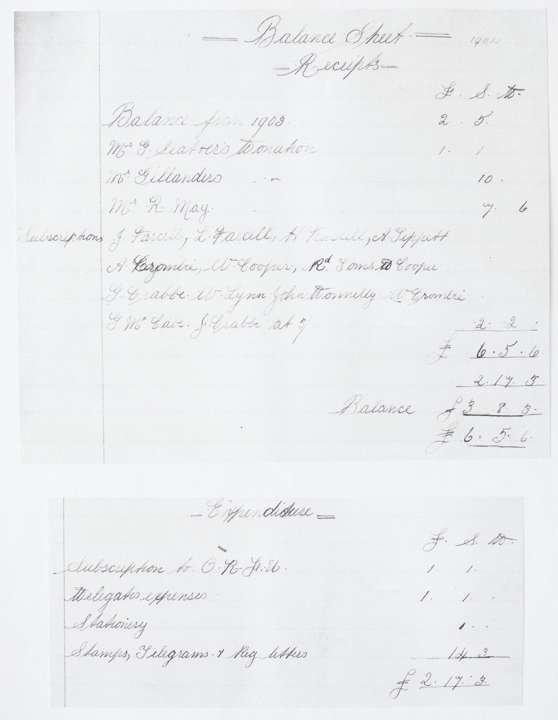 Balance Sheet 1904
Receipts
£. S. D.
Balance from 1903. 2 5.
Mr G. Seater's Donation 1. 1
Mr Gillanders " 10.
Mr R May 7. 6
Subscriptions J Farcell, L Farcell, H Russell, A Tippett
A Crombie, W. Cooper, Rd Toms D Cooper
G. Crabbe W. Lynn John Donnelly W Crombie
G. McCabe. J. Crabbe at 3/ 2. 2.
£ 6. 5. 6
2. 17. 3
Balance £3 8 3.
£ 6. 5. 6.
Expenditure
£. S. D.
Subscription to O. R. F. U. 1 1.
Delegates expenses 1. 1.
Stationery 1. .
Stamps, Telegrams. & Reg letters 14 3
£ 2. 17. 3.